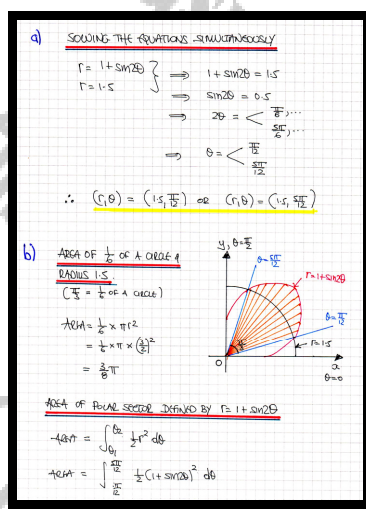 a) SOLVING THE EQUATIONS SIMULTANEOUSLY
r = 1 + sin2θ
r = 1.5
} ⇒ 1 + sin2θ = 1.5
⇒ sin2θ = 0.5
⇒ 2θ = < π/6, ...
5π/6, ...
⇒ θ = < π/12
5π/12
∴ (r,θ) = (1.5, π/12) OR (r,θ) = (1.5, 5π/12)
b) AREA OF 1/6 OF A CIRCLE OF
RADIUS 1.5.
(π/3 = 1/6 OF A CIRCLE)
AREA = 1/6 × πr²
= 1/6 × π × (3/2)²
= 3/8 π
y, θ=π/2
θ=5π/12
r=1+sin2θ
θ=π/12
π/3
r=1.5
O
x
θ=0
AREA OF POLAR SECTOR DEFINED BY r = 1 + sin2θ
AREA = ∫_θ₁^θ₂ 1/2 r² dθ
AREA = ∫_π/12^5π/12 1/2 (1 + sin2θ)² dθ